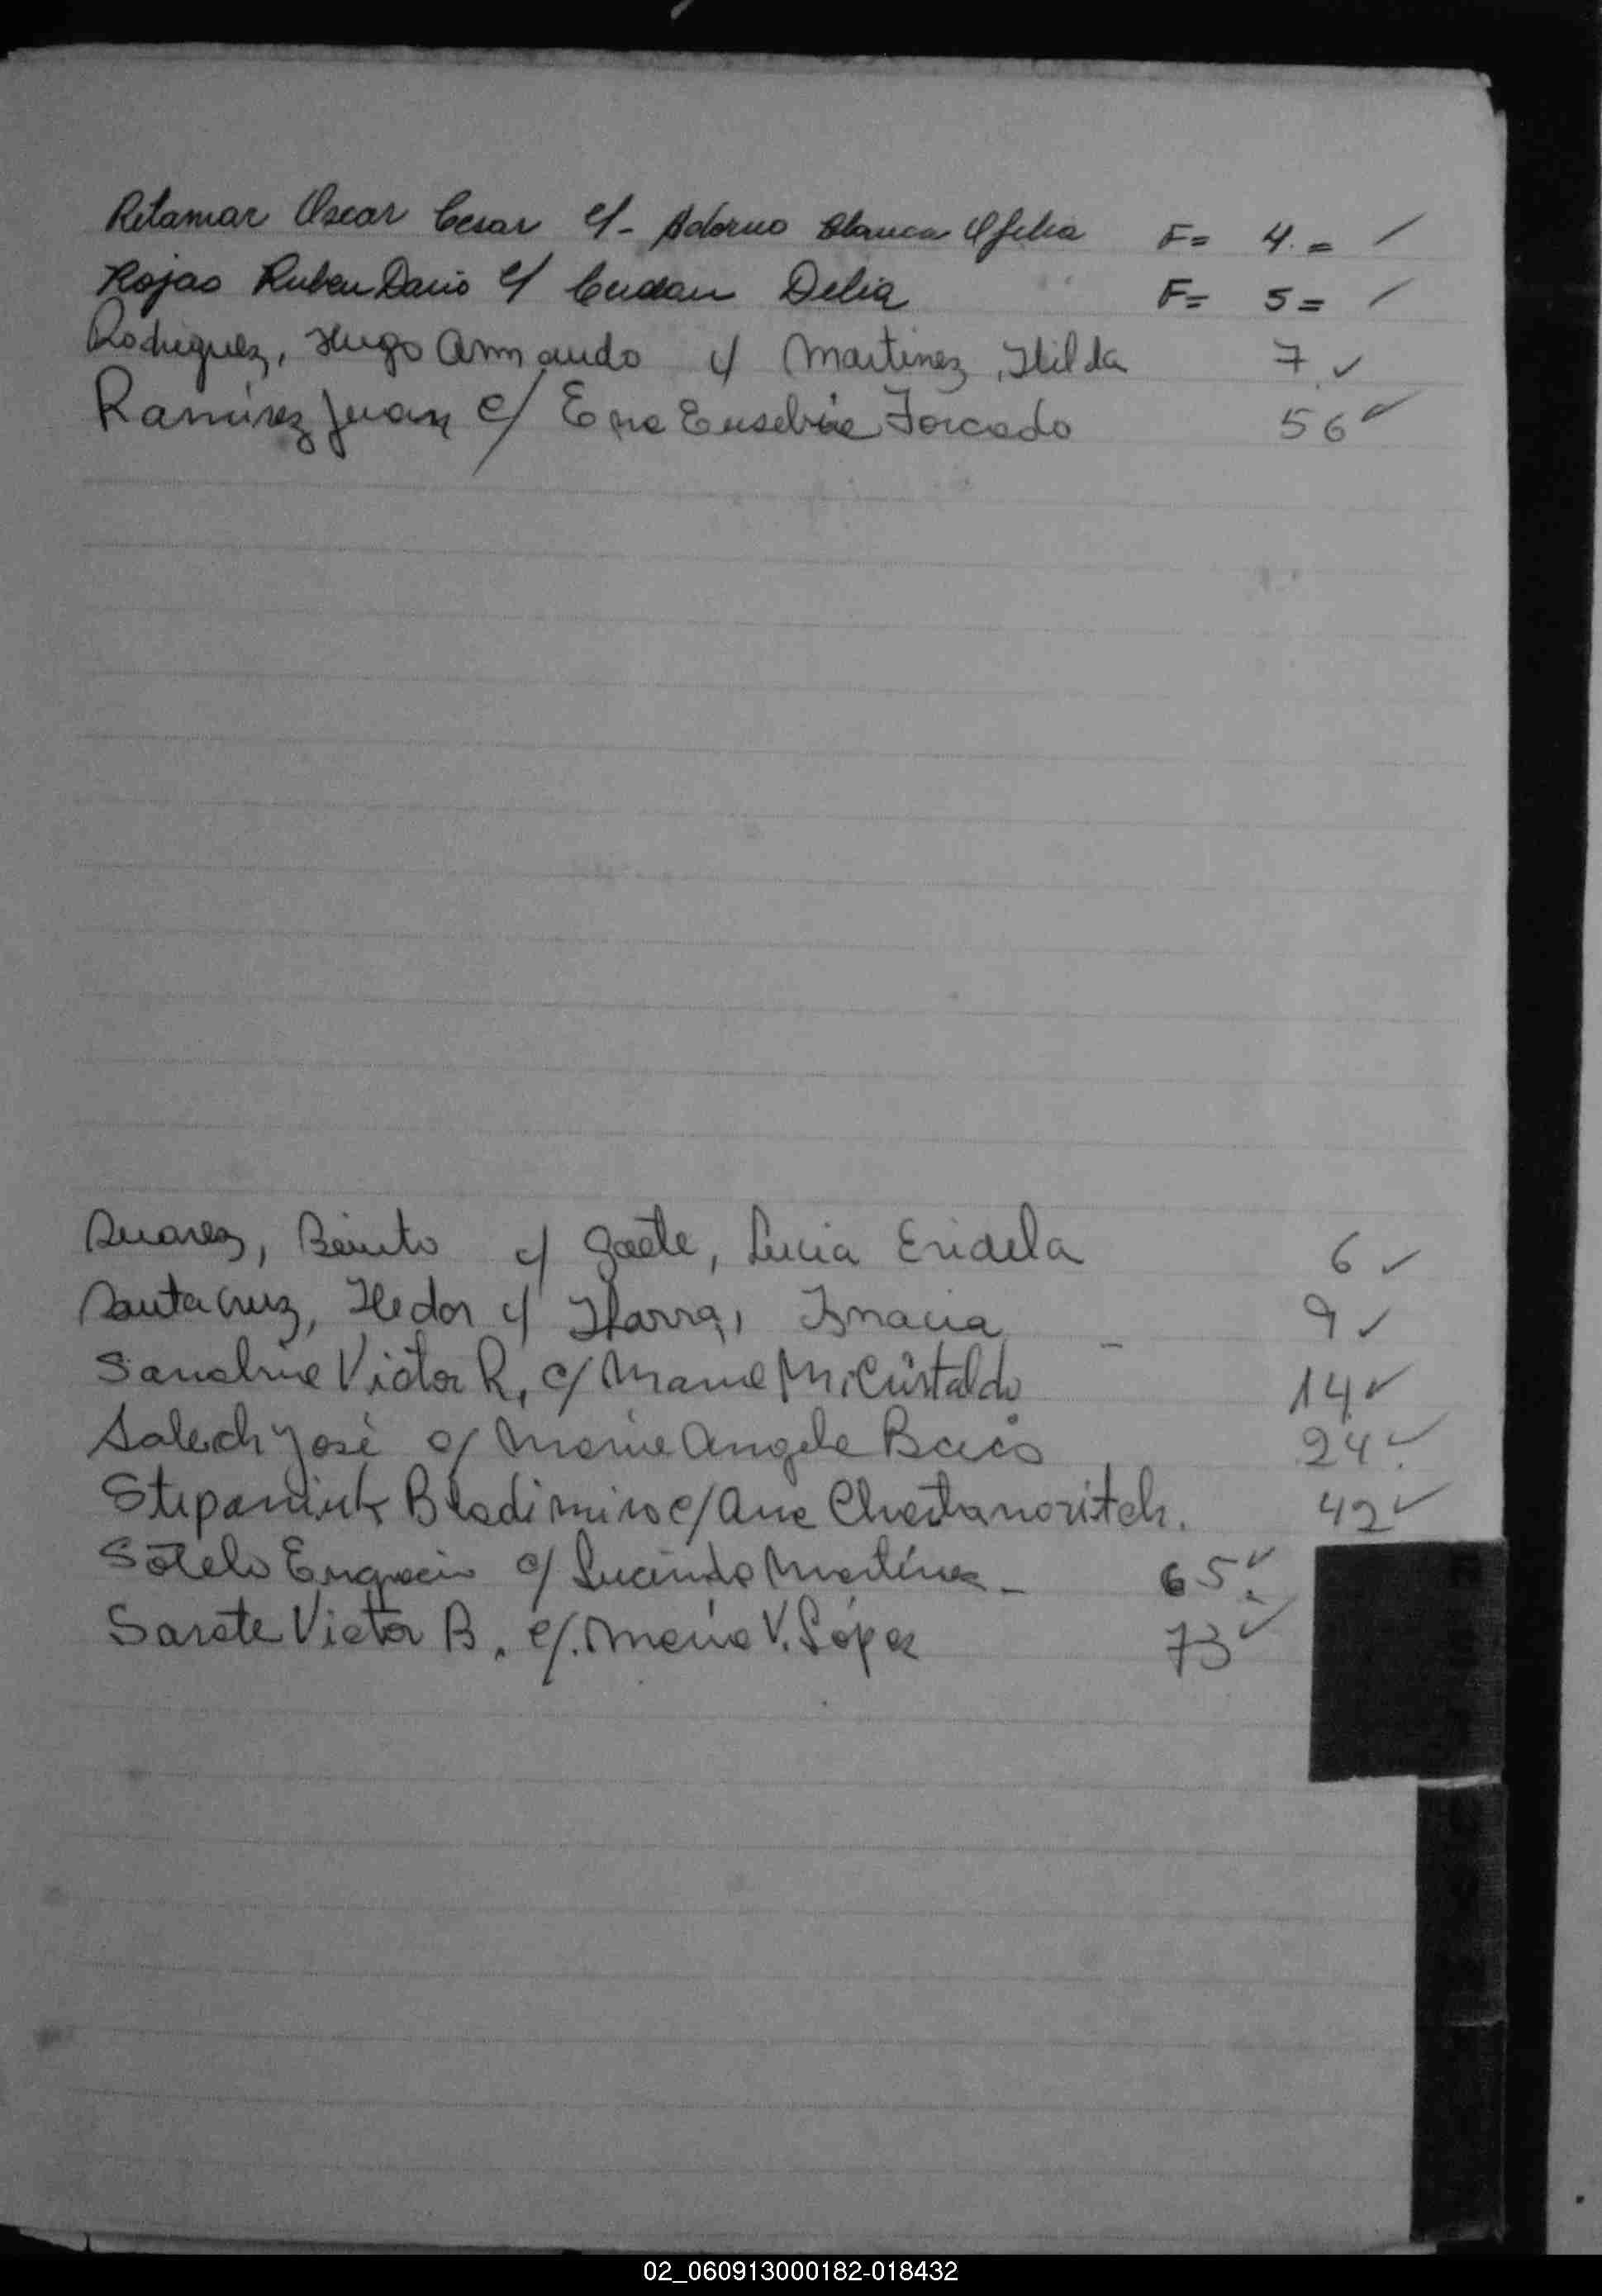 Retamar Oscar Cesar c/- Adorno Blanca Ofelia F= 4.= /
Rojas Ruben Dario c/ Delia F= 5= /
Rodriguez, Hugo Armando c/ Martinez, Hilda 7 ✓
Ramirez Juan c/ Eusebia Forcado 56 ✓
Suarez, Benito c/ Gaete, Lucia Eridela 6 ✓
Santa Cruz, Hector c/ Ibarra, Ignacia 9 ✓
Sanabria Victor R, c/ Maria M. Cristaldo 14 ✓
José c/ Maria Angela 24 ✓
c/ Ana 42 ✓
Sotelo Engracia c/ Martínez - 65 ✓
Sarate Victor B. c/. María V. López 73 ✓
02_060913000182-018432